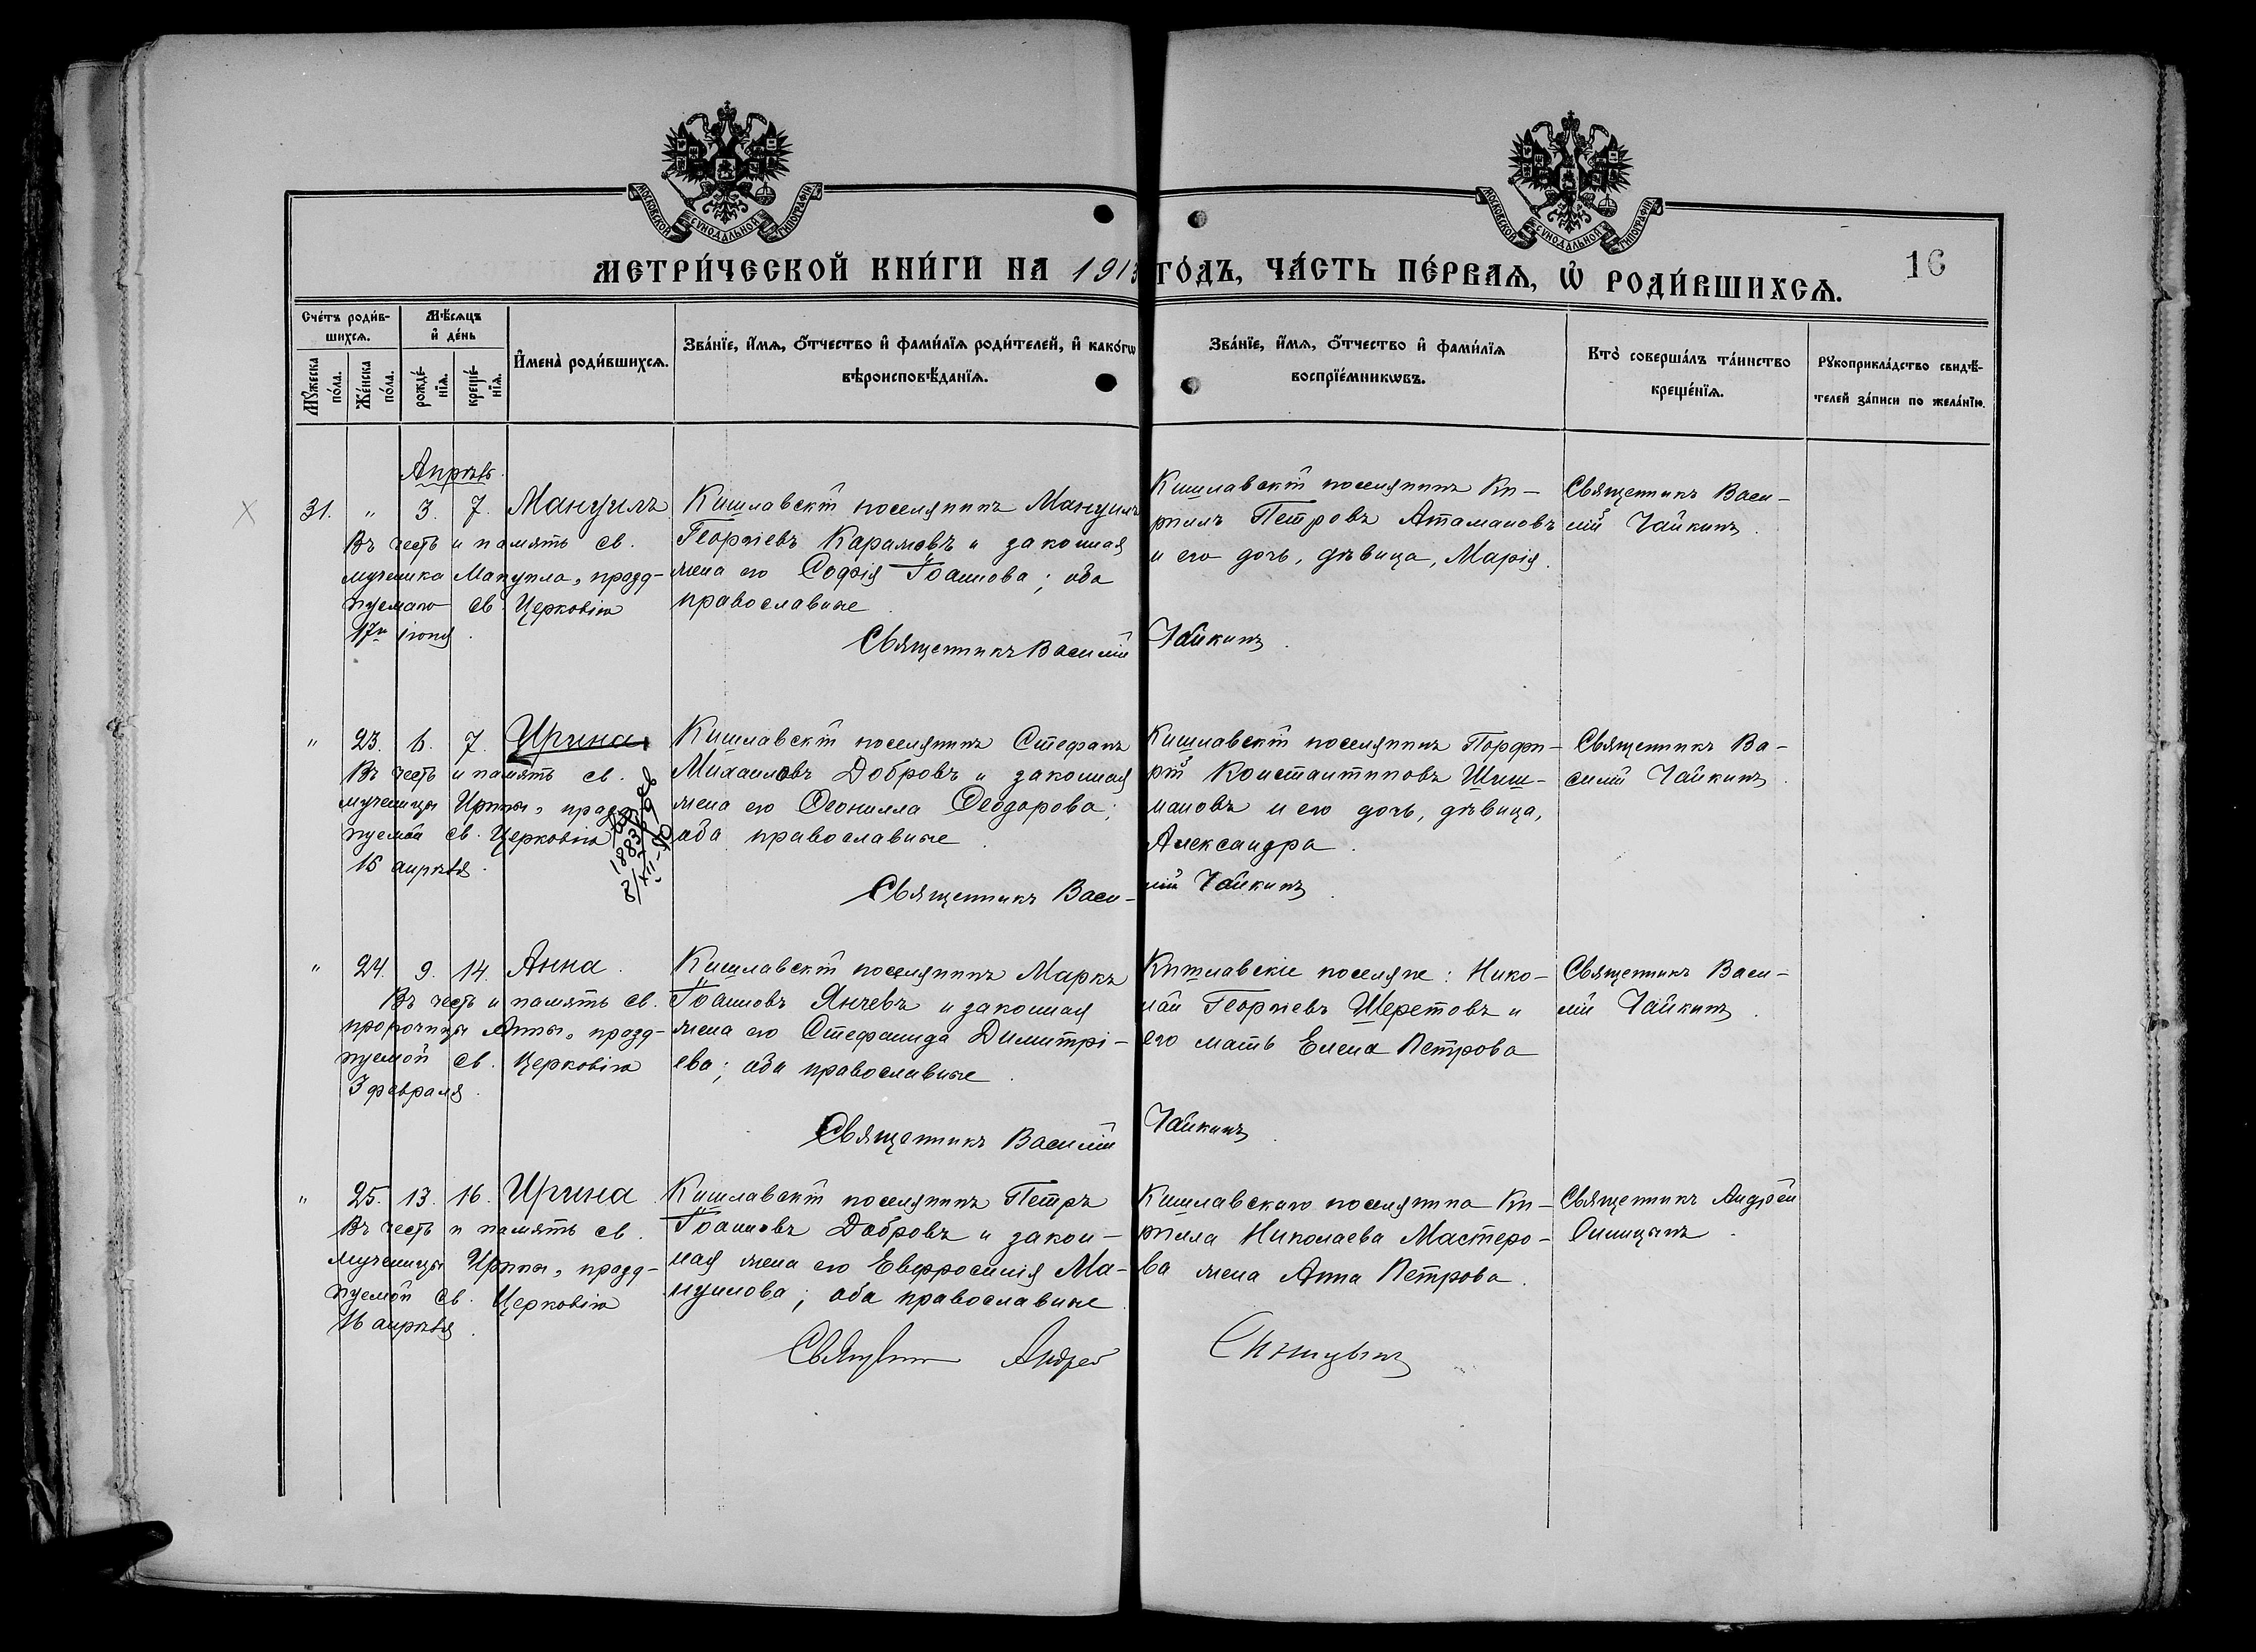 МОСКОВСКОЙ СѴНОДАЛЬНОЙ ТИПОГРАФІИ
МОСКОВСКОЙ СѴНОДАЛЬНОЙ ТИПОГРАФІИ
МЕТРИ́ЧЕСКОЙ КНИ́ГИ НА 1913 ГО́ДЪ, ЧА́СТЬ ПЕ́РВАѦ, Ѡ҆ РОДИ́ВШИХСѦ.
16
Сче́тъ роди́в-
шихсѧ.
Мꙋ́жеска по́ла.
Же́нска по́ла.
Мѣ́сѧцъ
и҆ де́нь
рожде́-
нїѧ.
креще́-
нїѧ.
И҆мена̀ роди́вшихсѧ.
Зва́нїе, и҆́мѧ, ѻ҆́тчество и҆ фами́лїѧ роди́телей, и҆ како́гѡ
вѣроисповѣ́данїѧ.
Зва́нїе, и҆́мѧ, ѻ҆́тчество и҆ фами́лїѧ
воспрїе́мникѡвъ.
Кто̀ соверша́лъ та́инство
креще́нїѧ.
Рꙋкоприкла́дство свидѣ́-
телей за́писи по жела́нїю.
Апрѣль.
31. " 3. 7. Мануилъ.
Въ честь и память св.
мученика Мануила, празд-
нуемаго св. Церковію
17го іюня.
Кишлавскій поселянинъ Мануилъ
Георгіевъ Карамовъ и законная
жена его Софія Іоаннова; оба
православные.
Кишлавскій поселянинъ Ки-
риллъ Петровъ Атамановъ
и его дочь, дѣвица, Марія.
Священникъ Васи-
лій Чайкинъ.
Священникъ Василій Чайкинъ.
" 23. 6. 7. Ирина
Въ честь и память св.
мученицы Ирины, празд-
нуемой св. Церковію
16 апрѣля.
Кишлавскій поселянинъ Стефанъ
Михаиловъ Добровъ и законная
жена его Ѳеонилла Ѳеодорова;
оба православные.
Кишлавскій поселянинъ Порфи-
рій Константиновъ Шиш-
мановъ и его дочь, дѣвица,
Александра.
Священникъ Ва-
силій Чайкинъ.
Священникъ Васи-
лій Чайкинъ.
" 24. 9. 14. Анна.
Въ честь и память св.
пророчицы Анны, празд-
нуемой св. Церковію
3 февраля.
Кишлавскій поселянинъ Маркъ
Іоанновъ Янчевъ и законная
жена его Стефанида Димитрі-
ева; оба православные.
Кишлавскіе поселяне: Нико-
лай Георгіевъ Шеретовъ и
его мать Елена Петрова
Священникъ Васи-
лій Чайкинъ.
Священникъ Василій Чайкинъ.
" 25. 13. 16. Ирина.
Въ честь и память св.
мученицы Ирины, празд-
нуемой св. Церковію
16 апрѣля.
Кишлавскій поселянинъ Петръ
Іоанновъ Добровъ и закон-
ная жена его Евфросинія Ма-
нуилова; оба православные.
Кишлавскаго поселянина Ки-
рилла Николаева Мастеро-
ва жена Анна Петрова.
Священникъ Андрей
Синицынъ.
Священникъ Андрей Синицынъ